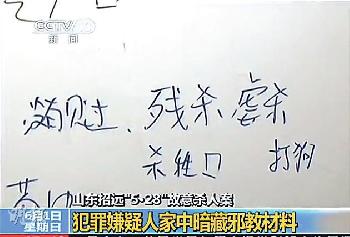 CCTV
新闻
残杀 虐杀
杀牲口 打狗
山东招远"5·28"故意杀人案
6月1日
星期日
犯罪嫌疑人家中暗藏邪教材料